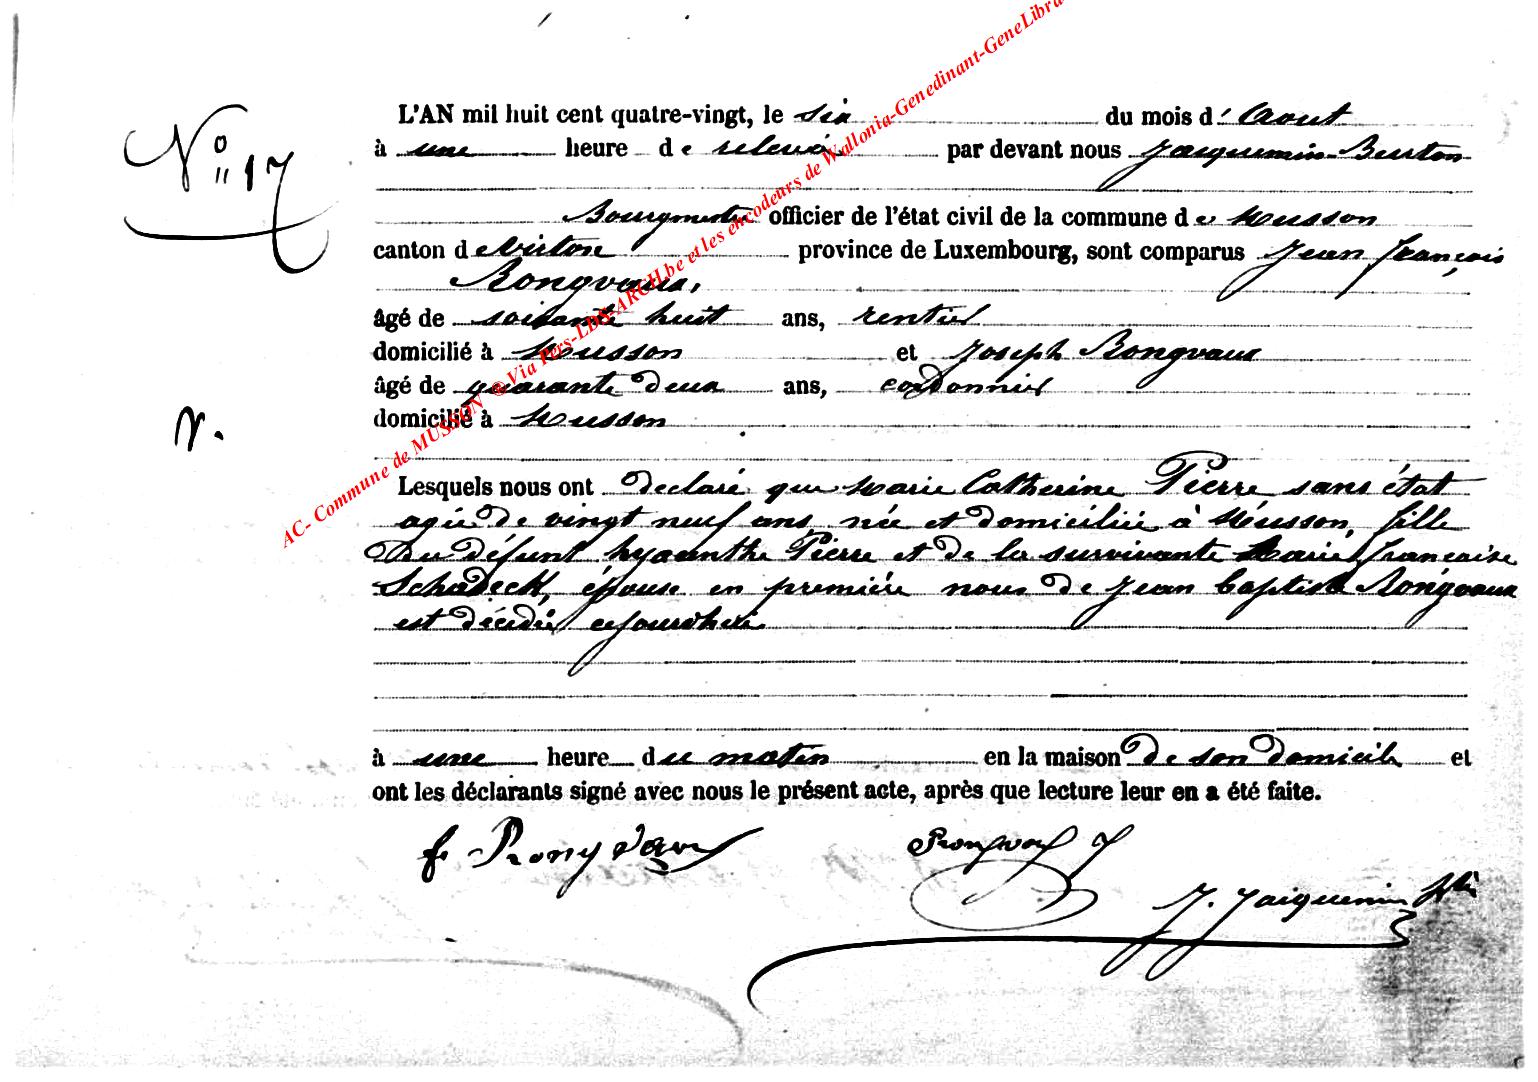 AC- Commune de MUSSON @Via Pers-LDS-ARCH.be et les encodeurs de Wallonia-Genedinant-GeneLibra
L'AN mil huit cent quatre-vingt, le six du mois d' Aout
N° 17
à une heure de relevée par devant nous Jacquemin-Burton
Bourgmestre officier de l'état civil de la commune de Musson
canton de Virton province de Luxembourg, sont comparus Jean François
Rongvaux,
âgé de soixante huit ans, rentier
domicilié à Musson et Joseph Rongvaux
âgé de quarante deux ans, cordonnier
domicilié à Musson
Lesquels nous ont declaré que Marie Catherine Pierre sans état
agée de vingt neuf ans, née et domiciliée à Musson, fille
Du défunt hyacinthe Pierre et de la survivante Marie françoise
Schadeck, épouse en première nous de Jean baptiste Rongvaux
est décédée cejourdhui
à une heure du matin en la maison de son domicile et
ont les déclarants signé avec nous le présent acte, après que lecture leur en a été faite.
f Rongvaux
Rongvaux J
J. Jacquemin